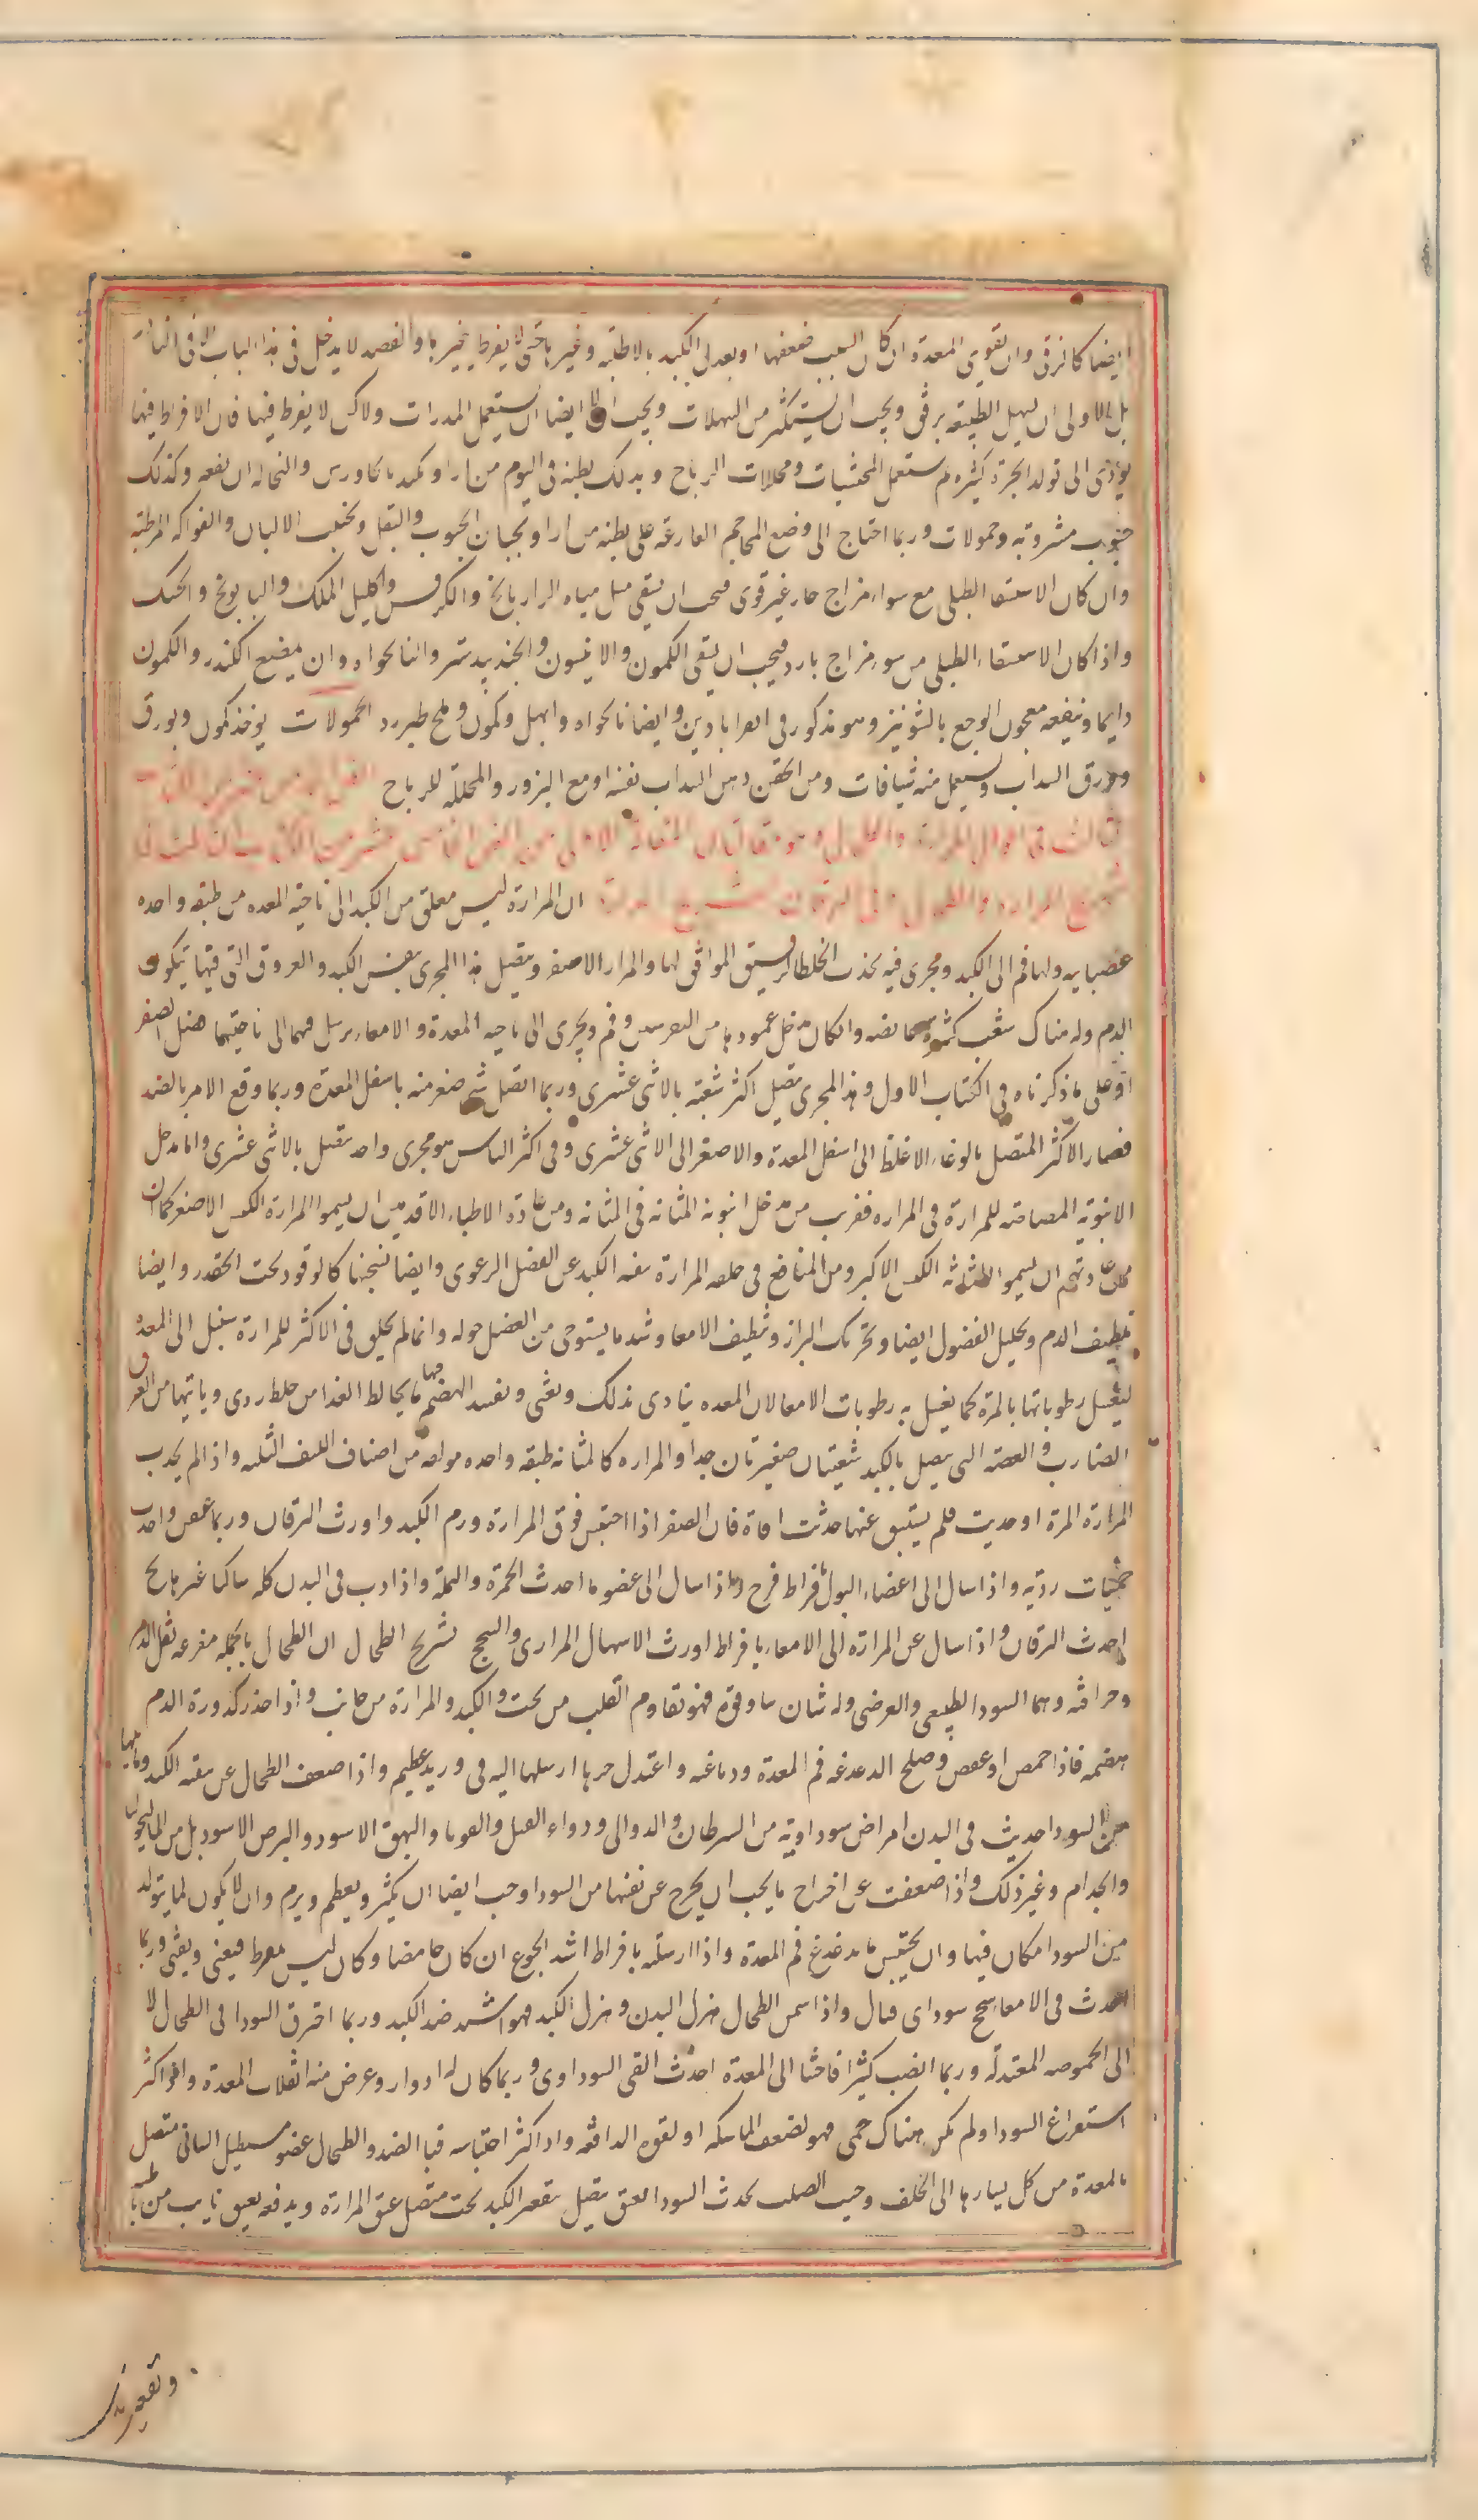 ايضا كالزقى وان يقوى المعدة ان كان السبب ضعفها او يعدل الكبد بالاطلية وغيرها حتى لا يفرط تغييرها والفصد لا يدخل فى هذا الباب الا فى النادر
بل الاولى ان يسهل الطبيعة برفق ويجب ان يستكثر من المسهلات ويجب ايضا ان يستعمل المدرات ولاكن لا يفرط فيها فان الافراط فيها
يؤدى الى تولد ابخرة كثيرة ثم يستعمل المحشيات ومحللات الرياح ويدلك بطنه فى اليوم مرارا ويكمد بالكاورس والنخالة ان نفعه وكذلك
حبوب مشروبة وحمولات وربما احتاج الى وضع المحاجم الفارغة على بطنه مرارا ويجتنب الحبوب والبقل ويجتنب الالبان والفواكه الرطبة
وان كان الاستسقا الطبلى مع سوء مزاج حار غير قوى فيجب ان يسقى مثل مياه الرازيانج والكرفس واكليل الملك والبابونج والحسك
واذا كان الاستسقاء الطبلى من سوء مزاج بارد فيجب ان يسقى الكمون والانيسون والجندبيدستر والنانخواه وان يمضغ الكندر والكمون
دايما وينفعه معجون الوج بالشونيز وهو مذكور فى القرابادين وايضا نانخواه وابهل وكمون وملح طبرزد الحمولات يوخذ كمون وبورق
وورق السداب ويستعمل منه شيافات ومن الحقن دهن السداب نفسه او مع البزور والمحللة للرياح
فى احوال المرارة والطحال وهو مقالتان المقالة الاولى من الفن الخامس عشر من الكتاب الثالث فى
تشريح المرارة والطحال وفى اليرقان تشريح المرارة ان المرارة كيس معلق من الكبد الى ناحية المعدة من طبقة واحدة
عصبانية ولها فم الى الكبد ومجرى فيه يجذب الخلط الرقيق الموافق لها والمرار الاصفر ويتصل هذا المجرى بنفس الكبد والعروق التى فيها يتكون
الدم وله هناك شعب كثيرة غايصة وان كان مدخل عمودها من التقعير وفم ومجرى الى ناحية المعدة والامعاء يرسل فيهما الى ناحيتهما فضل الصفرا
على ما ذكرناه فى الكتاب الاول وهذا المجرى يتصل اكثر شعبته بالاثنى عشرى وربما اتصل شى صغير منه باسفل المعدة وربما وقع الامر بالضد
فصار الاكثر المتصل بالوعاء الاغلظ الى اسفل المعدة والاصغر الى الاثنى عشرى وفى اكثر الناس هو مجرى واحد متصل بالاثنى عشرى واما مدخل
الانبوبة المصاصة للمرارة فى المرارة فقريب من مدخل انبوبة المثانة فى المثانة ومن عادة الاطباء الاقدمين ان يسموا المرارة الكيس الاصغر كما ان
من عادتهم ان يسموا المثانة الكيس الاكبر ومن المنافع فى خلقه المرارة تنقية الكبد عن الفضل الرغوى وايضا تسخينها كالوقود تحت القدر وايضا
تلطيف الدم وتحليل الفضول ايضا وتحريك البراز وتنظيف الامعا وشد ما يسترخى من العضل حوله وانما لم يخلق فى الاكثر للمرارة سبيل الى المعدة
ليغسل رطوباتها بالمرة كما يغسل به رطوبات الامعا لان المعدة يتاذى بذلك ويغثى ويفسد الهضم فيها بما يخالط الغذا من خلط ردى وياتيها من العرق
الضارب والعصبة التى يتصل بالكبد شعبتان صغيرتان جدا والمرارة كالمثانة طبقة واحدة مولفة من اصناف الليف الثلثة واذا لم يجذب
المرارة المرة او جذبت فلم يستنق عنها حدثت افات فان الصفرا اذا احتبس فوق المرارة ورم الكبد واورث اليرقان وربما عفن واحدث
حميات ردية واذا سال الى اعضاء البول بافراط قرح واذا سال الى عضو ما احدث الحمرة والنملة واذا دب فى البدن كله ساكنا غير هايج
احدث اليرقان واذا سال عن المرارة الى الامعاء بافراط اورث الاسهال المرارى والسحج تشريح الطحال ان الطحال بالجملة مفرغة ثفل الدم
وحراقته وهما السودا الطبيعى والعرضى وله شان ما وقوة فهو يقاوم القلب من تحت والكبد والمرارة من جانب واذا جذب كدورة الدم
هضمه فاذا حمض او عفص وصلح لدغدغة فم المعدة ودباغته واعتدل حرها ارسلها اليه فى وريد عظيم واذا ضعف الطحال عن تنقية الكبد وما يليها
من السودا حدث فى البدن امراض سوداوية من السرطان والدوالى وداء الفيل والقوبا والبهق الاسود والبرص الاسود بل من الماليخوليا
والجذام وغير ذلك واذا ضعفت عن اخراج ما يجب ان يخرج عن نفسها من السودا وجب ايضا ان يكبر ويعظم ويرم وان لا يكون لما يتولد
من السودا مكان فيها وان يحتبس ما يدغدغ فم المعدة واذا ارسلته بافراط اشتد الجوع ان كان حامضا وكان ليس بمفرط فيغثى ويقيى وربما
احدث فى الامعاء سحج سوداى قتال واذا سمن الطحال هزل البدن وهزل الكبد فهو اشد ضد الكبد وربما احترق السودا فى الطحال لا
الى الحموضة المعتدلة وربما انصب كثيرا فاحشا الى المعدة احدث القى السوداوى وربما كان له ادوار وعرض منه انقلاب المعدة واذا كثر
استفراغ السودا ولم يكن هناك حمى فهو لضعف الماسكة او لقوة الدافعة واذا كثر احتباسه فبالضد والطحال عضو مستطيل لسانى متصل
بالمعدة من كل يسارها الى الخلف وحيث الصلب يجذب السودا بعنق يتصل بتقعير الكبد تحت متصل عنق المرارة ويدفعه بعنق نابت من باطنه
وتقعيره